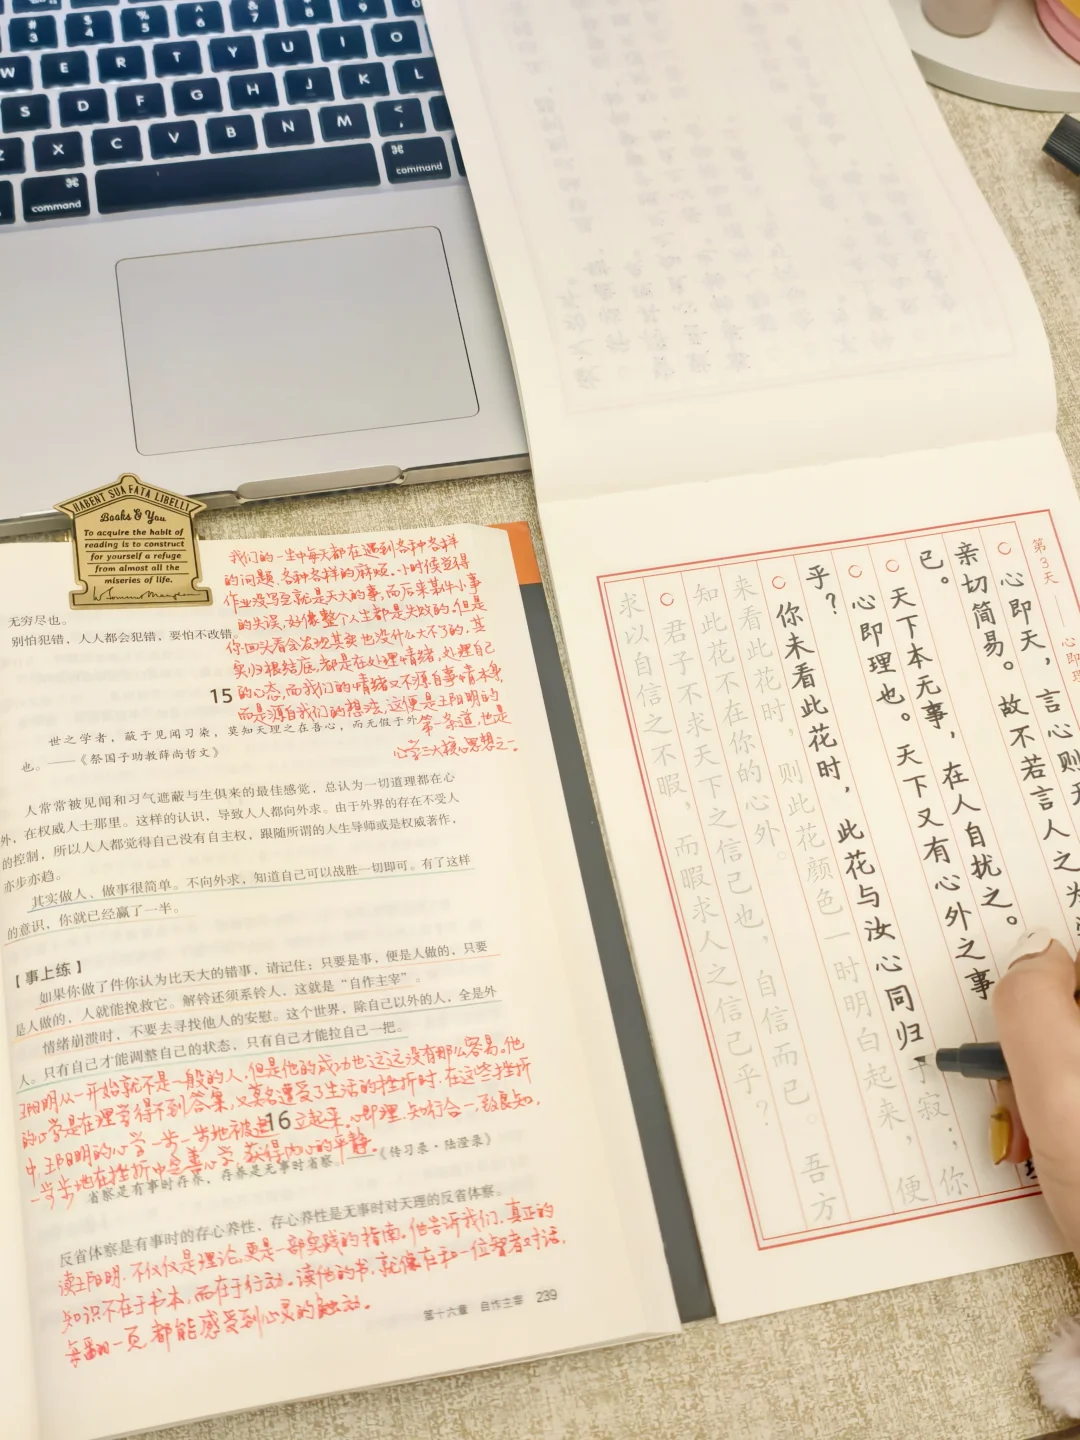 # 3
$ 4
% 5
^ 6
& 7
* 8
( 9
) 0
W E R T Y U I O
S D F G H J K L
X C V B N M < ,
⌘ command
⌘ command
HABENT SUA FATA LIBELLI
Books & You
To acquire the habit of
reading is to construct
for yourself a refuge
from almost all the
miseries of life.
无穷尽也。
别怕犯错，人人都会犯错，要怕不改错。
我们的一生中每天都在遇到各种各样
的问题、各种各样的麻烦。小时候觉得
作业没写完就是天大的事，而后来某件小事
的失误，好像整个人生都是失败的。但是
你回头看会发现其实也没什么大不了的。其
实归根结底，都是在处理情绪，处理自己
的心态，而我们的情绪又不源自事情本身，
而是源自我们的想法，这便是王阳明的
第一条道，也是
心学三大核心思想之一。
15
世之学者，蔽于见闻习染，莫知天理之在吾心，而无假于外
也。——《祭国子助教薛尚哲文》
人常常被见闻和习气遮蔽与生俱来的最佳感觉，总认为一切道理都在心
外，在权威人士那里。这样的认识，导致人人都向外求。由于外界的存在不受人
的控制，所以人人都觉得自己没有自主权，跟随所谓的人生导师或是权威著作，
亦步亦趋。
其实做人、做事很简单。不向外求，知道自己可以战胜一切即可。有了这样
的意识，你就已经赢了一半。
【事上练】
如果你做了件你认为比天大的错事，请记住：只要是事，便是人做的，只要
是人做的，人就能挽救它。解铃还须系铃人，这就是“自作主宰”。
情绪崩溃时，不要去寻找他人的安慰。这个世界，除自己以外的人，全是外
人。只有自己才能调整自己的状态，只有自己才能拉自己一把。
王阳明从一开始就不是一般的人，但是他的成功也远远没有那么容易。他
的心学是在理学得不到答案，又莫名遭受了生活的挫折时，在这些挫折
中，王阳明的心学一步一步地被建立起来。心即理，知行合一，致良知，
一步步地在挫折中完善心学，获得内心的平静。
16
省察是有事时存养，存养是无事时省察。——《传习录·陆澄录》
反省体察是有事时的存心养性，存心养性是无事时对天理的反省体察。
读王阳明，不仅仅是理论，更是一部实践的指南。他告诉我们，真正的
知识不在于书本，而在于行动。读他的书，就像在和一位智者对话，
每翻一页，都能感受到心灵的触动。
第十六章 自作主宰 239
第3天 — 心即理
心即天，言心则天
亲切简易。故不若言人之为学
已。
天下本无事，在人自扰之。
心即理也。天下又有心外之事
乎？
你未看此花时，此花与汝心同归于寂；你
来看此花时，则此花颜色一时明白起来，便
知此花不在你的心外。
君子不求天下之信己也，自信而已。吾方
求以自信之不暇，而暇求人之信己乎？